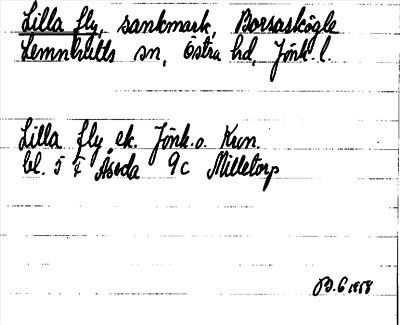 Lilla fly, sankmark, Borsaskögle
Lemnhults sn, Östra hd, Jönk. l.
Lilla fly ek. Jönk. o. Kron.
bl. 5 f Åseda 9c Milletorp
B.G 1958